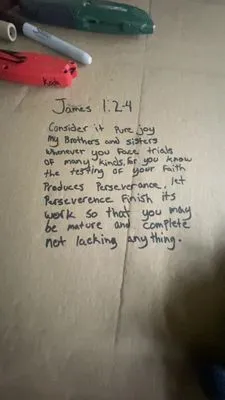 James 1:2-4
Consider it pure joy
my Brothers and sisters
whenever you face trials
of many kinds, for you know
the testing of your Faith
Produces Perseverance, let
Perseverence Finish its
work so that you may
be mature and complete
not lacking anything.